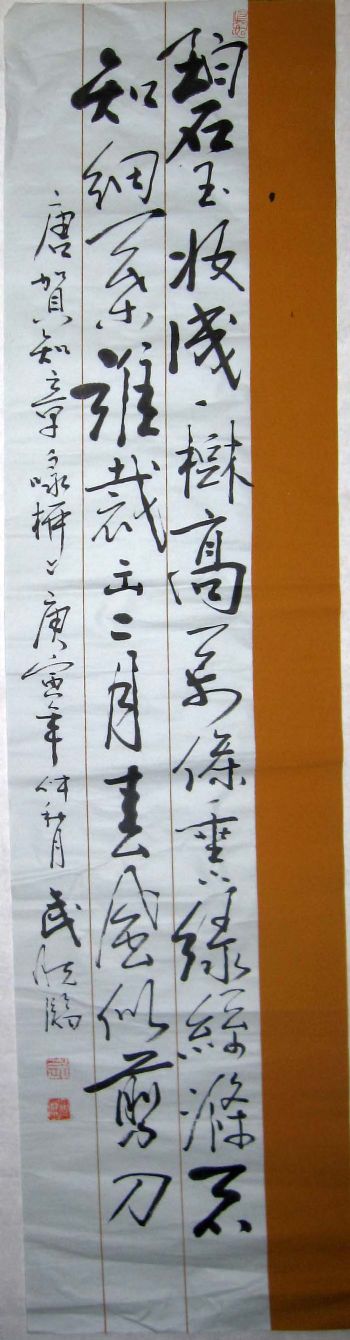 碧玉妝成一樹高万條垂下綠絲絛不
知細葉誰裁出二月春風似剪刀
唐賀知章詠柳庚寅年仲秋月武